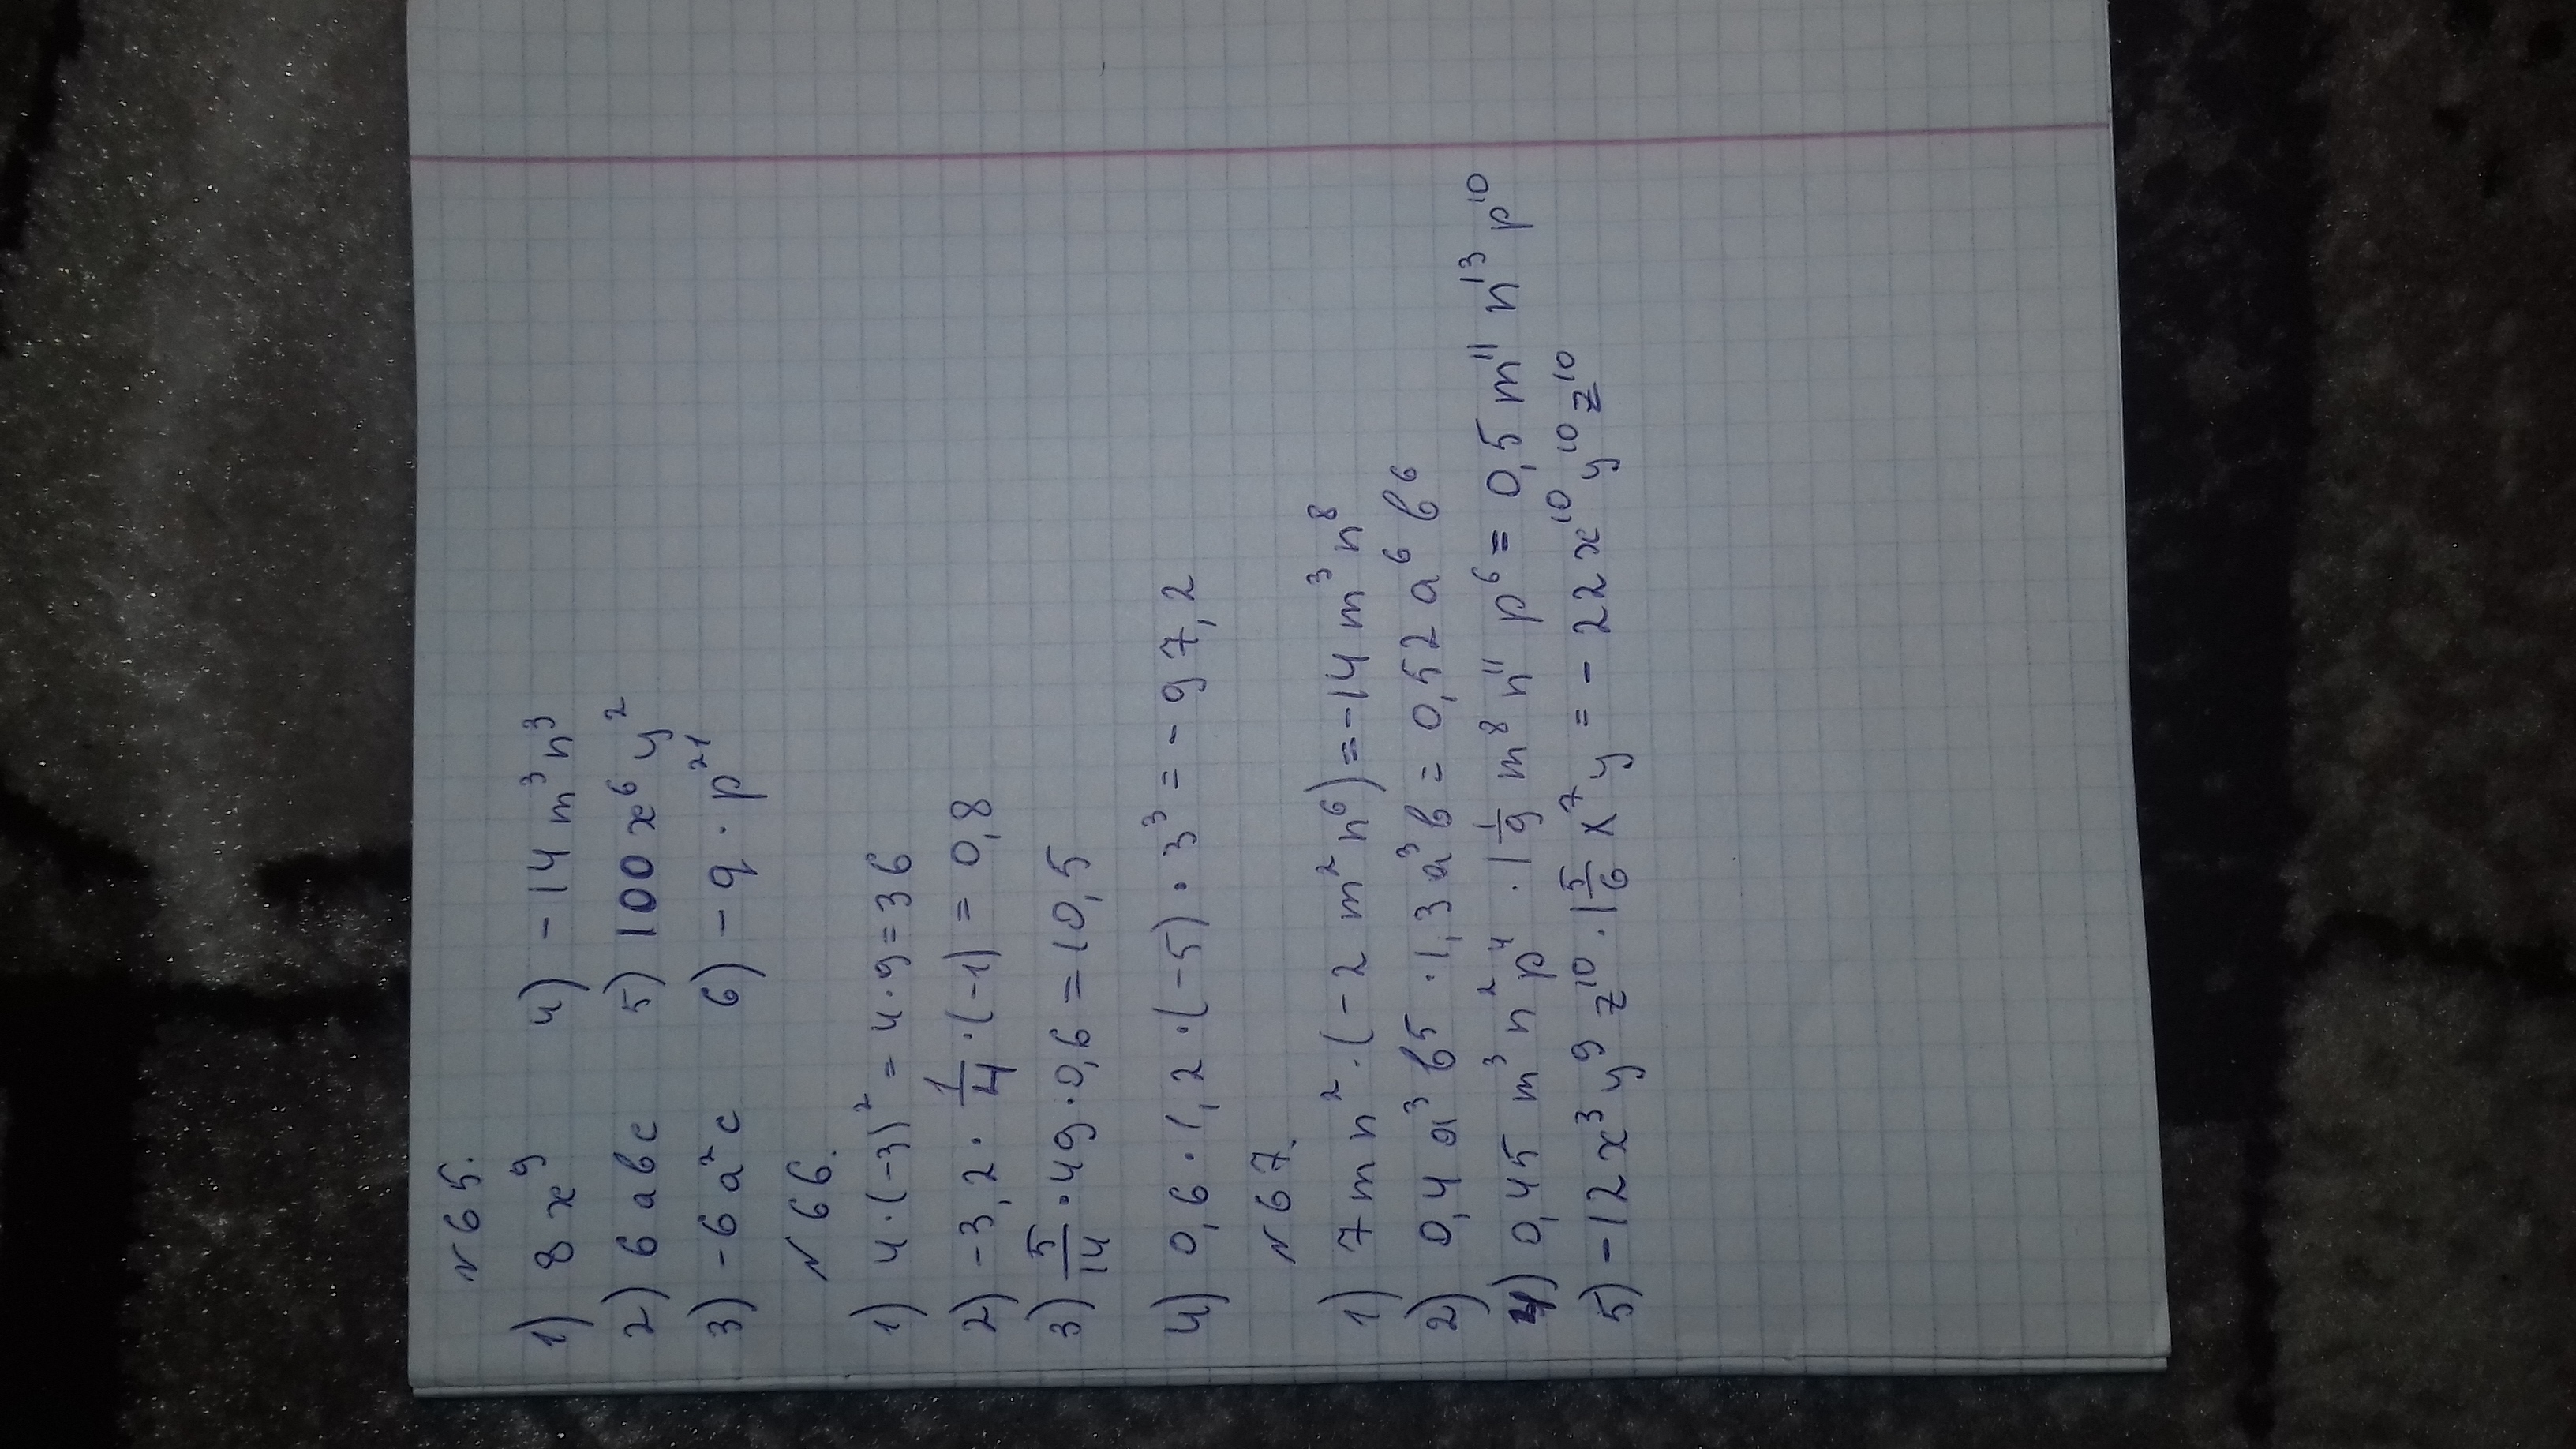 № 65.
1) 8x⁹ 4) -14m³n³
2) 6abc 5) 100x⁶y²
3) -6a²c 6) -9·p²¹
№ 66.
1) 4·(-3)² = 4·9=36
2) -3,2·1/4·(-1) = 0,8
3) 5/14·49·0,6 = 10,5
4) 0,6·1,2·(-5)·3³ = -97,2
№ 67.
1) 7mn²·(-2m²n⁶)=-14m³n⁸
2) 0,4a³b⁵·1,3a³b = 0,52a⁶b⁶
4) 0,45m³n²p⁴·1 1/9 m⁸n¹¹p⁶ = 0,5m¹¹n¹³p¹⁰
5) -12x³y⁹z¹⁰·1 5/6 x⁷y = -22x¹⁰y¹⁰z¹⁰